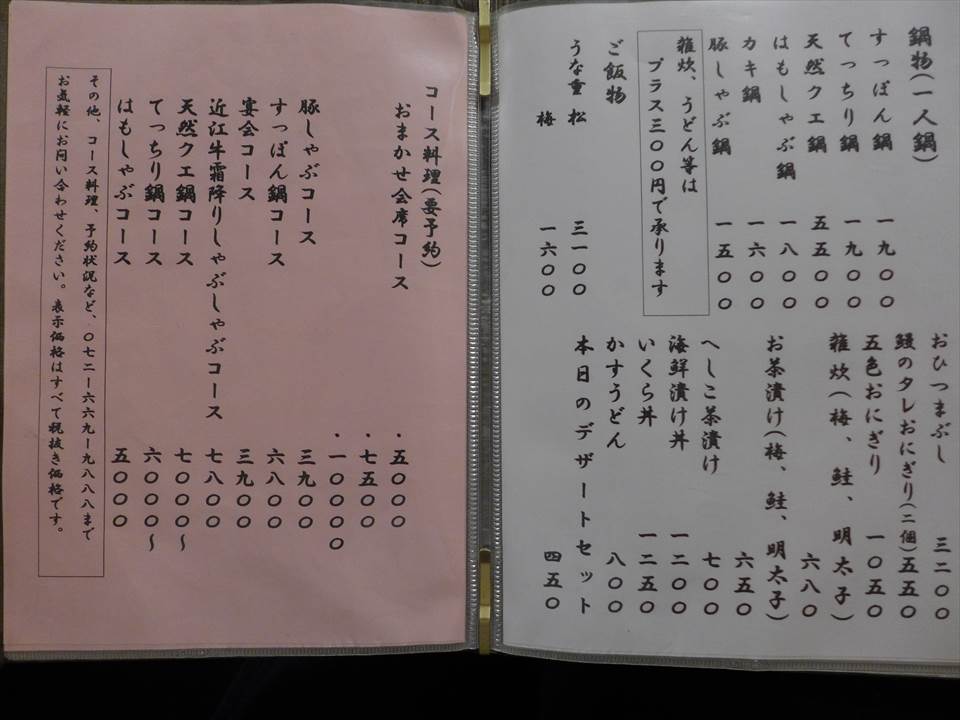 鍋物(一人鍋)
すっぽん鍋 一九〇〇
てっちり鍋 一九〇〇
天然クエ鍋 五五〇〇
はもしゃぶ鍋 一八〇〇
カキ鍋 一六〇〇
豚しゃぶ鍋 一五〇〇
雑炊、うどん等は
プラス三〇〇円で承ります
ご飯物
うな重 松 三一〇〇
梅 一六〇〇
おひつまぶし 三二〇〇
鰻のタレおにぎり(二個)五五〇
五色おにぎり 一〇五〇
雑炊(梅、鮭、明太子)
六八〇
お茶漬け(梅、鮭、明太子)
六五〇
へしこ茶漬け 七〇〇
海鮮漬け丼 一二〇〇
いくら丼 一二五〇
かすうどん 八〇〇
本日のデザートセット
四五〇
コース料理(要予約)
おまかせ会席コース ・五〇〇〇
・七五〇〇
・一〇〇〇〇
豚しゃぶコース 三九〇〇
すっぽん鍋コース 六八〇〇
宴会コース 三九〇〇
近江牛霜降りしゃぶしゃぶコース 七八〇〇
天然クエ鍋コース 七〇〇〇～
てっちり鍋コース 六〇〇〇～
はもしゃぶコース 五〇〇〇
その他、コース料理、予約状況など、〇七二ー六六九ー九八八八まで
お気軽にお問い合わせください。表示価格はすべて税抜き価格です。